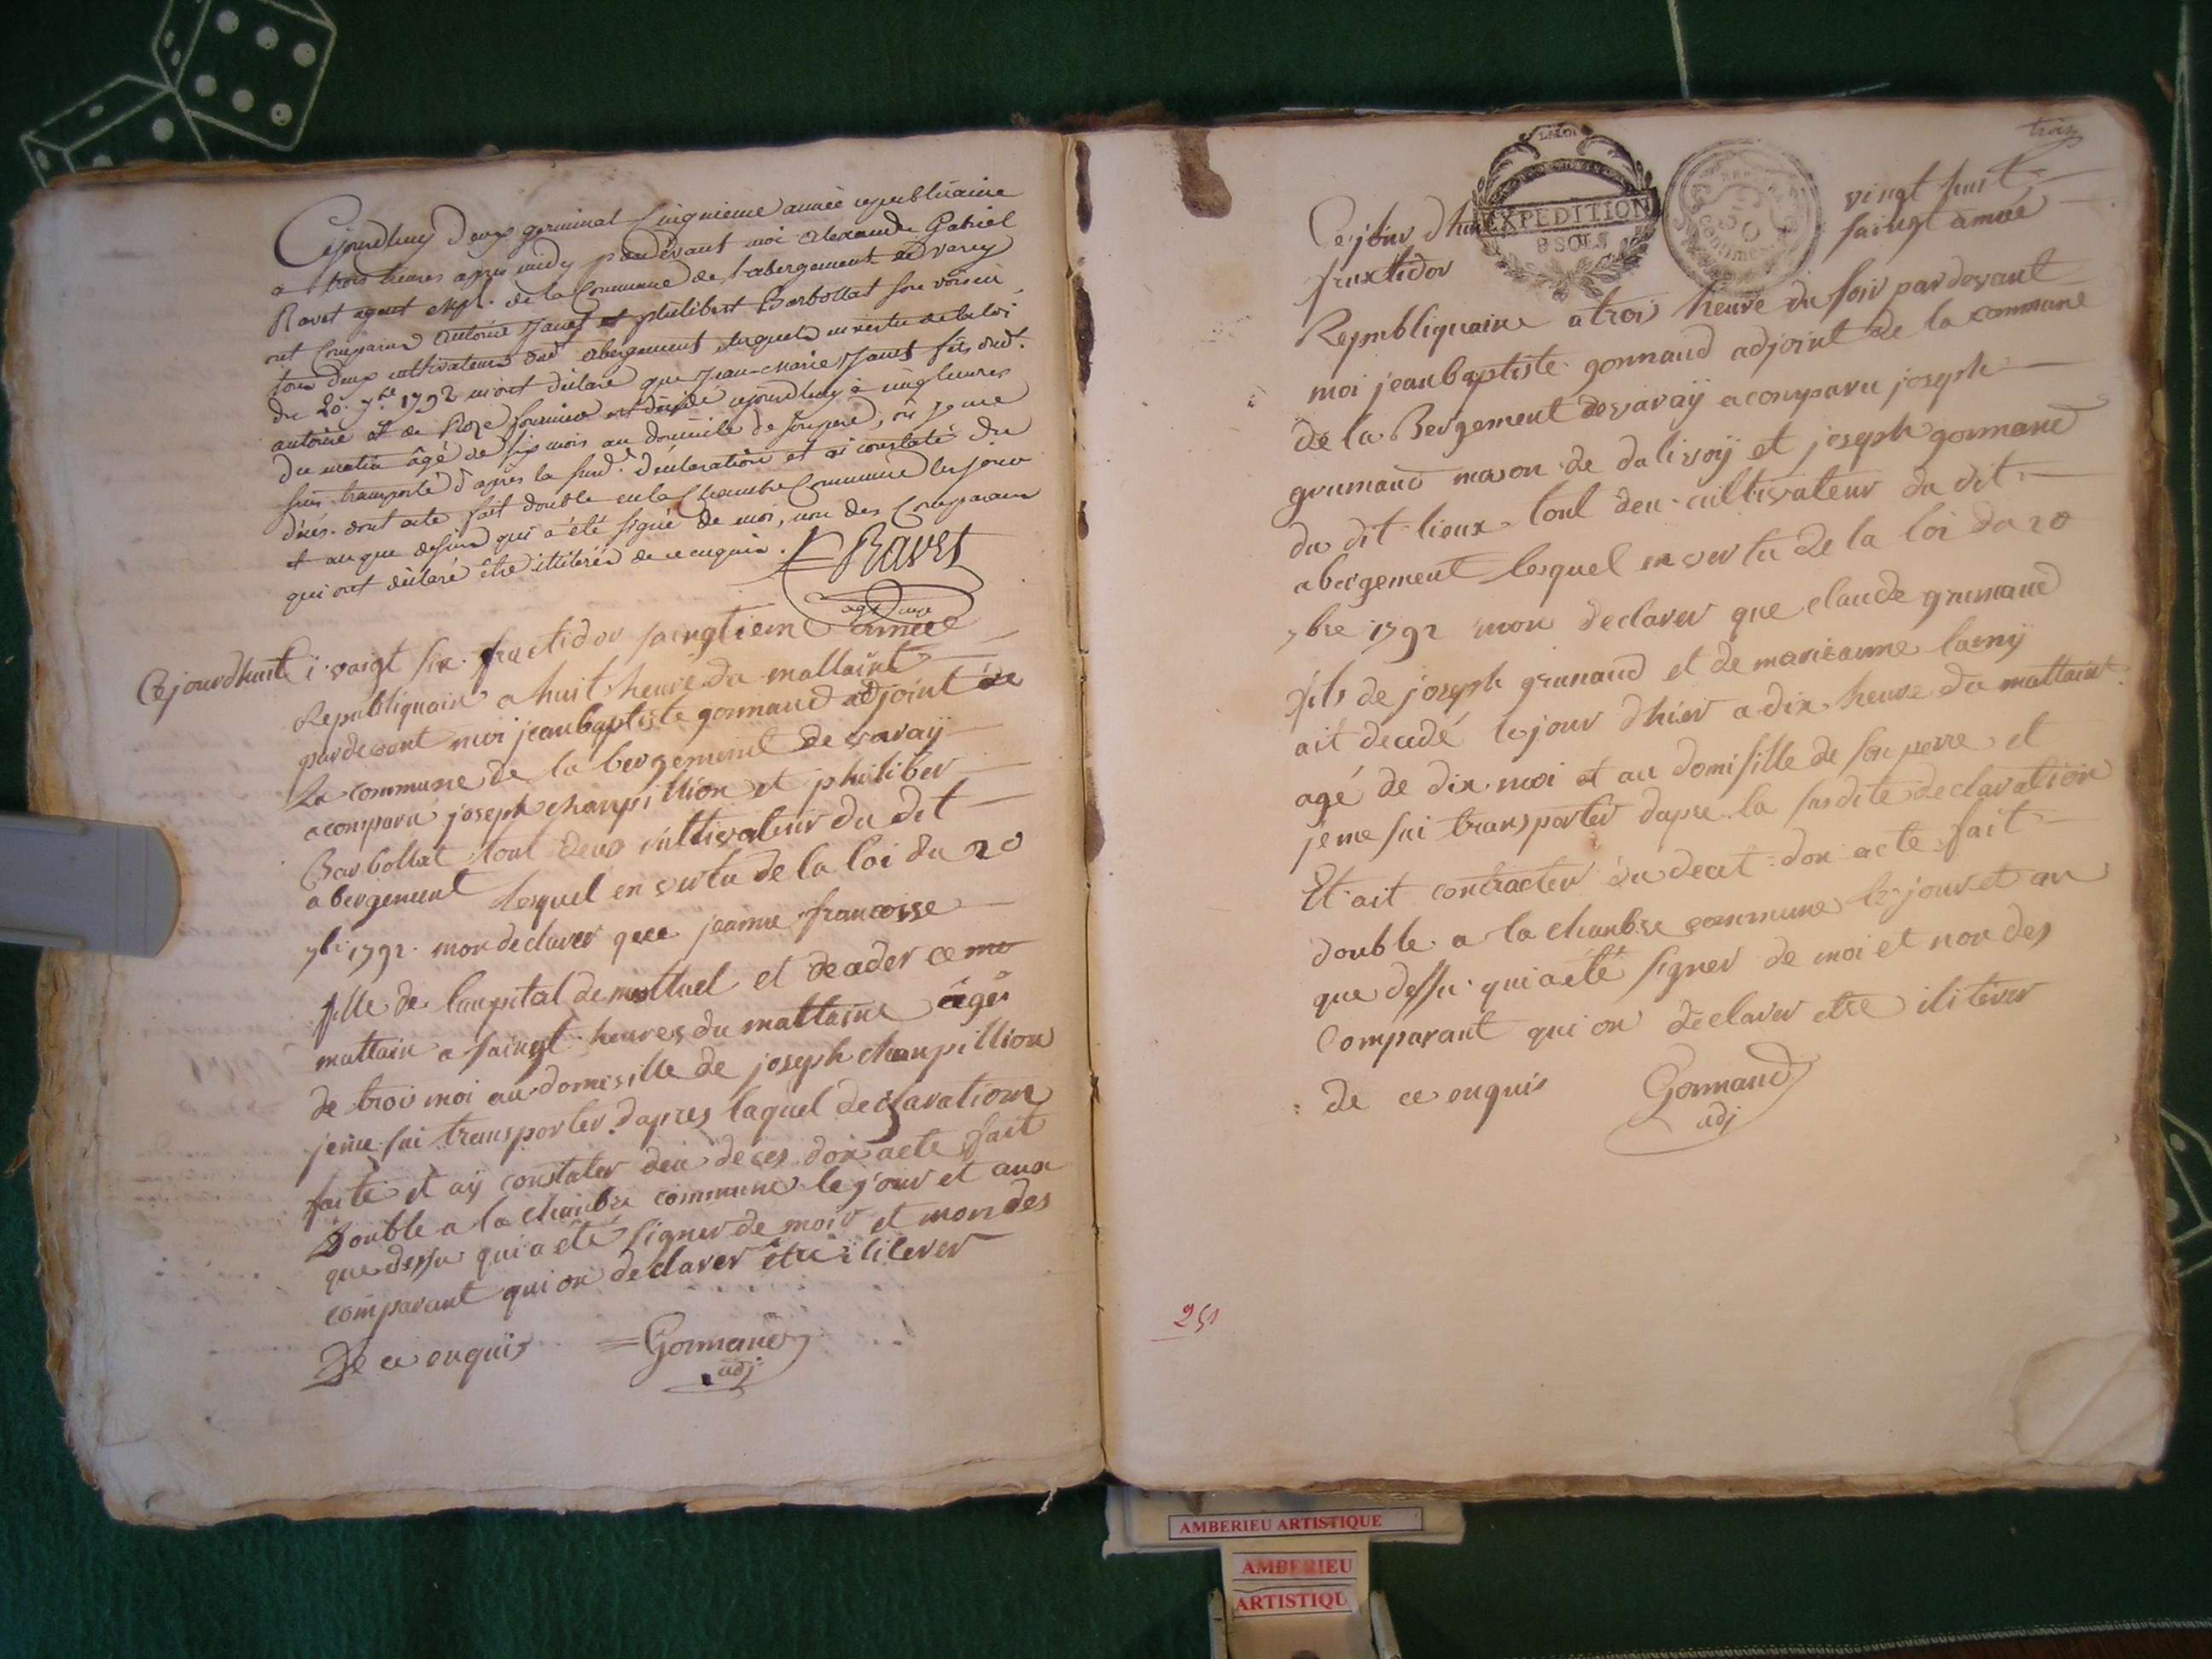 Cejourdhuy deux germinal cinquieme année republicaine
a trois heures apres midy pardevant moi alexandre Gabriel
Ravet agent mpl. de la Commune de l'abergement de varey
ont Comparu antoine Janet et philibert Barbollat son voisin
tous deux cultivateurs dud. abergement, lesquels en vertu de la loi
du 20. 7bre 1792 m'ont déclaré que Jean-Marie Janet fils dud.
antoine et de Roze fournier est décédé cejourdhuy à cinq heures
du matin âgé de six mois au domicile de son pere, où je me
suis transporté d'après la susd.e déclaration et ai constaté du
décès. dont acte fait double en la Chambre Commune les jour
et an que dessus qui a été signé de moi, non des Comparans
qui ont déclaré être illiterés de ce enquis.
Ravet
agt mpl
Cejourdhuit i vaigt six fructidor saingtieme année
Republiquain a huit heure du mattaint
pardevant moi jean baptiste gonnand adjoint de
La commune de la bergement de varaÿ
a comparu joseph chanpillion et philiber
Barbollat tout deux cultivateur du dit
abergement lesquel en vertu de la loi du 20
7bre 1792. mon declarer que jeanne francoise
fille de laupital de mottuel et deceder ce mo
mattain a saingt heures du mattaine âgé
de troi moi au domisille de joseph chanpillion
jeme sui transporter dapres laquel declaration
faite et aÿ constater deu déces don acte fait
Double a la chanbre commune le jour et aux
que dessu qui a eté signer de moi et non des
comparant qui on declarer être iliterer
De ce enquis = Gonnand
adj
trois
LA LOI
EXPEDITION
8 SOLS
50
Centimes
Ce jour dhui vingt huit
fruxtidor saingt annee
Republiquaine a troi heure du soir par devant
moi jean baptiste gonnand adjoint de la commune
de la Bergement de varaÿ a comparu joseph
grumaud mason de dalivoÿ et joseph gonnand
du dit lieux tout deu cultivateur du dit
abergement lesquel en vertu de la loi du 20
7bre 1792 mon declarer que claude grumaud
fils de joseph grunaud et de marieanne lamÿ
ait decedé le jour dhier a dix heure du mattaint
agé de dix moi et au domisille de son perre et
jeme sui transporter dapre la susdite declaration
Et ait contracter du decet don acte fait
double a la chanbre commune le jour et an
que dessu qui a eté signer de moi et non des
Comparant qui on declarer etre iliterer
de ce enquis Gonnand
adj
251
AMBERIEU ARTISTIQUE
AMBERIEU
ARTISTIQU